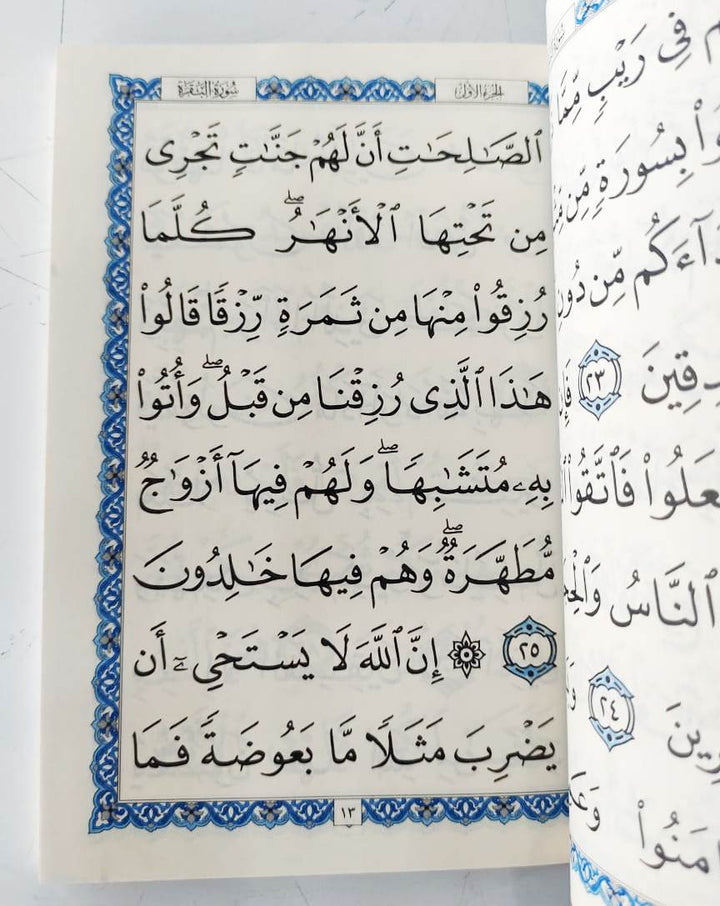 الجزء الاول
سورة البقرة
ٱلصَّـٰلِحَـٰتِ أَنَّ لَهُمْ جَنَّـٰتٍ تَجْرِى
مِن تَحْتِهَا ٱلْأَنْهَـٰرُ ۖ كُلَّمَا
رُزِقُوا۟ مِنْهَا مِن ثَمَرَةٍ رِّزْقًا قَالُوا۟
هَـٰذَا ٱلَّذِى رُزِقْنَا مِن قَبْلُ ۖ وَأُتُوا۟
بِهِۦ مُتَشَـٰبِهًا ۖ وَلَهُمْ فِيهَآ أَزْوَٰجٌ
مُّطَهَّرَةٌ ۖ وَهُمْ فِيهَا خَـٰلِدُونَ
٢٥ ۞ إِنَّ ٱللَّهَ لَا يَسْتَحْىِۦٓ أَن
يَضْرِبَ مَثَلًا مَّا بَعُوضَةً فَمَا
١٣
فِى رَيْبٍ مِّمَّا
بِسُورَةٍ مِّن
مِّن دُونِ
٢٣
ٱلنَّاسُ
٢٤